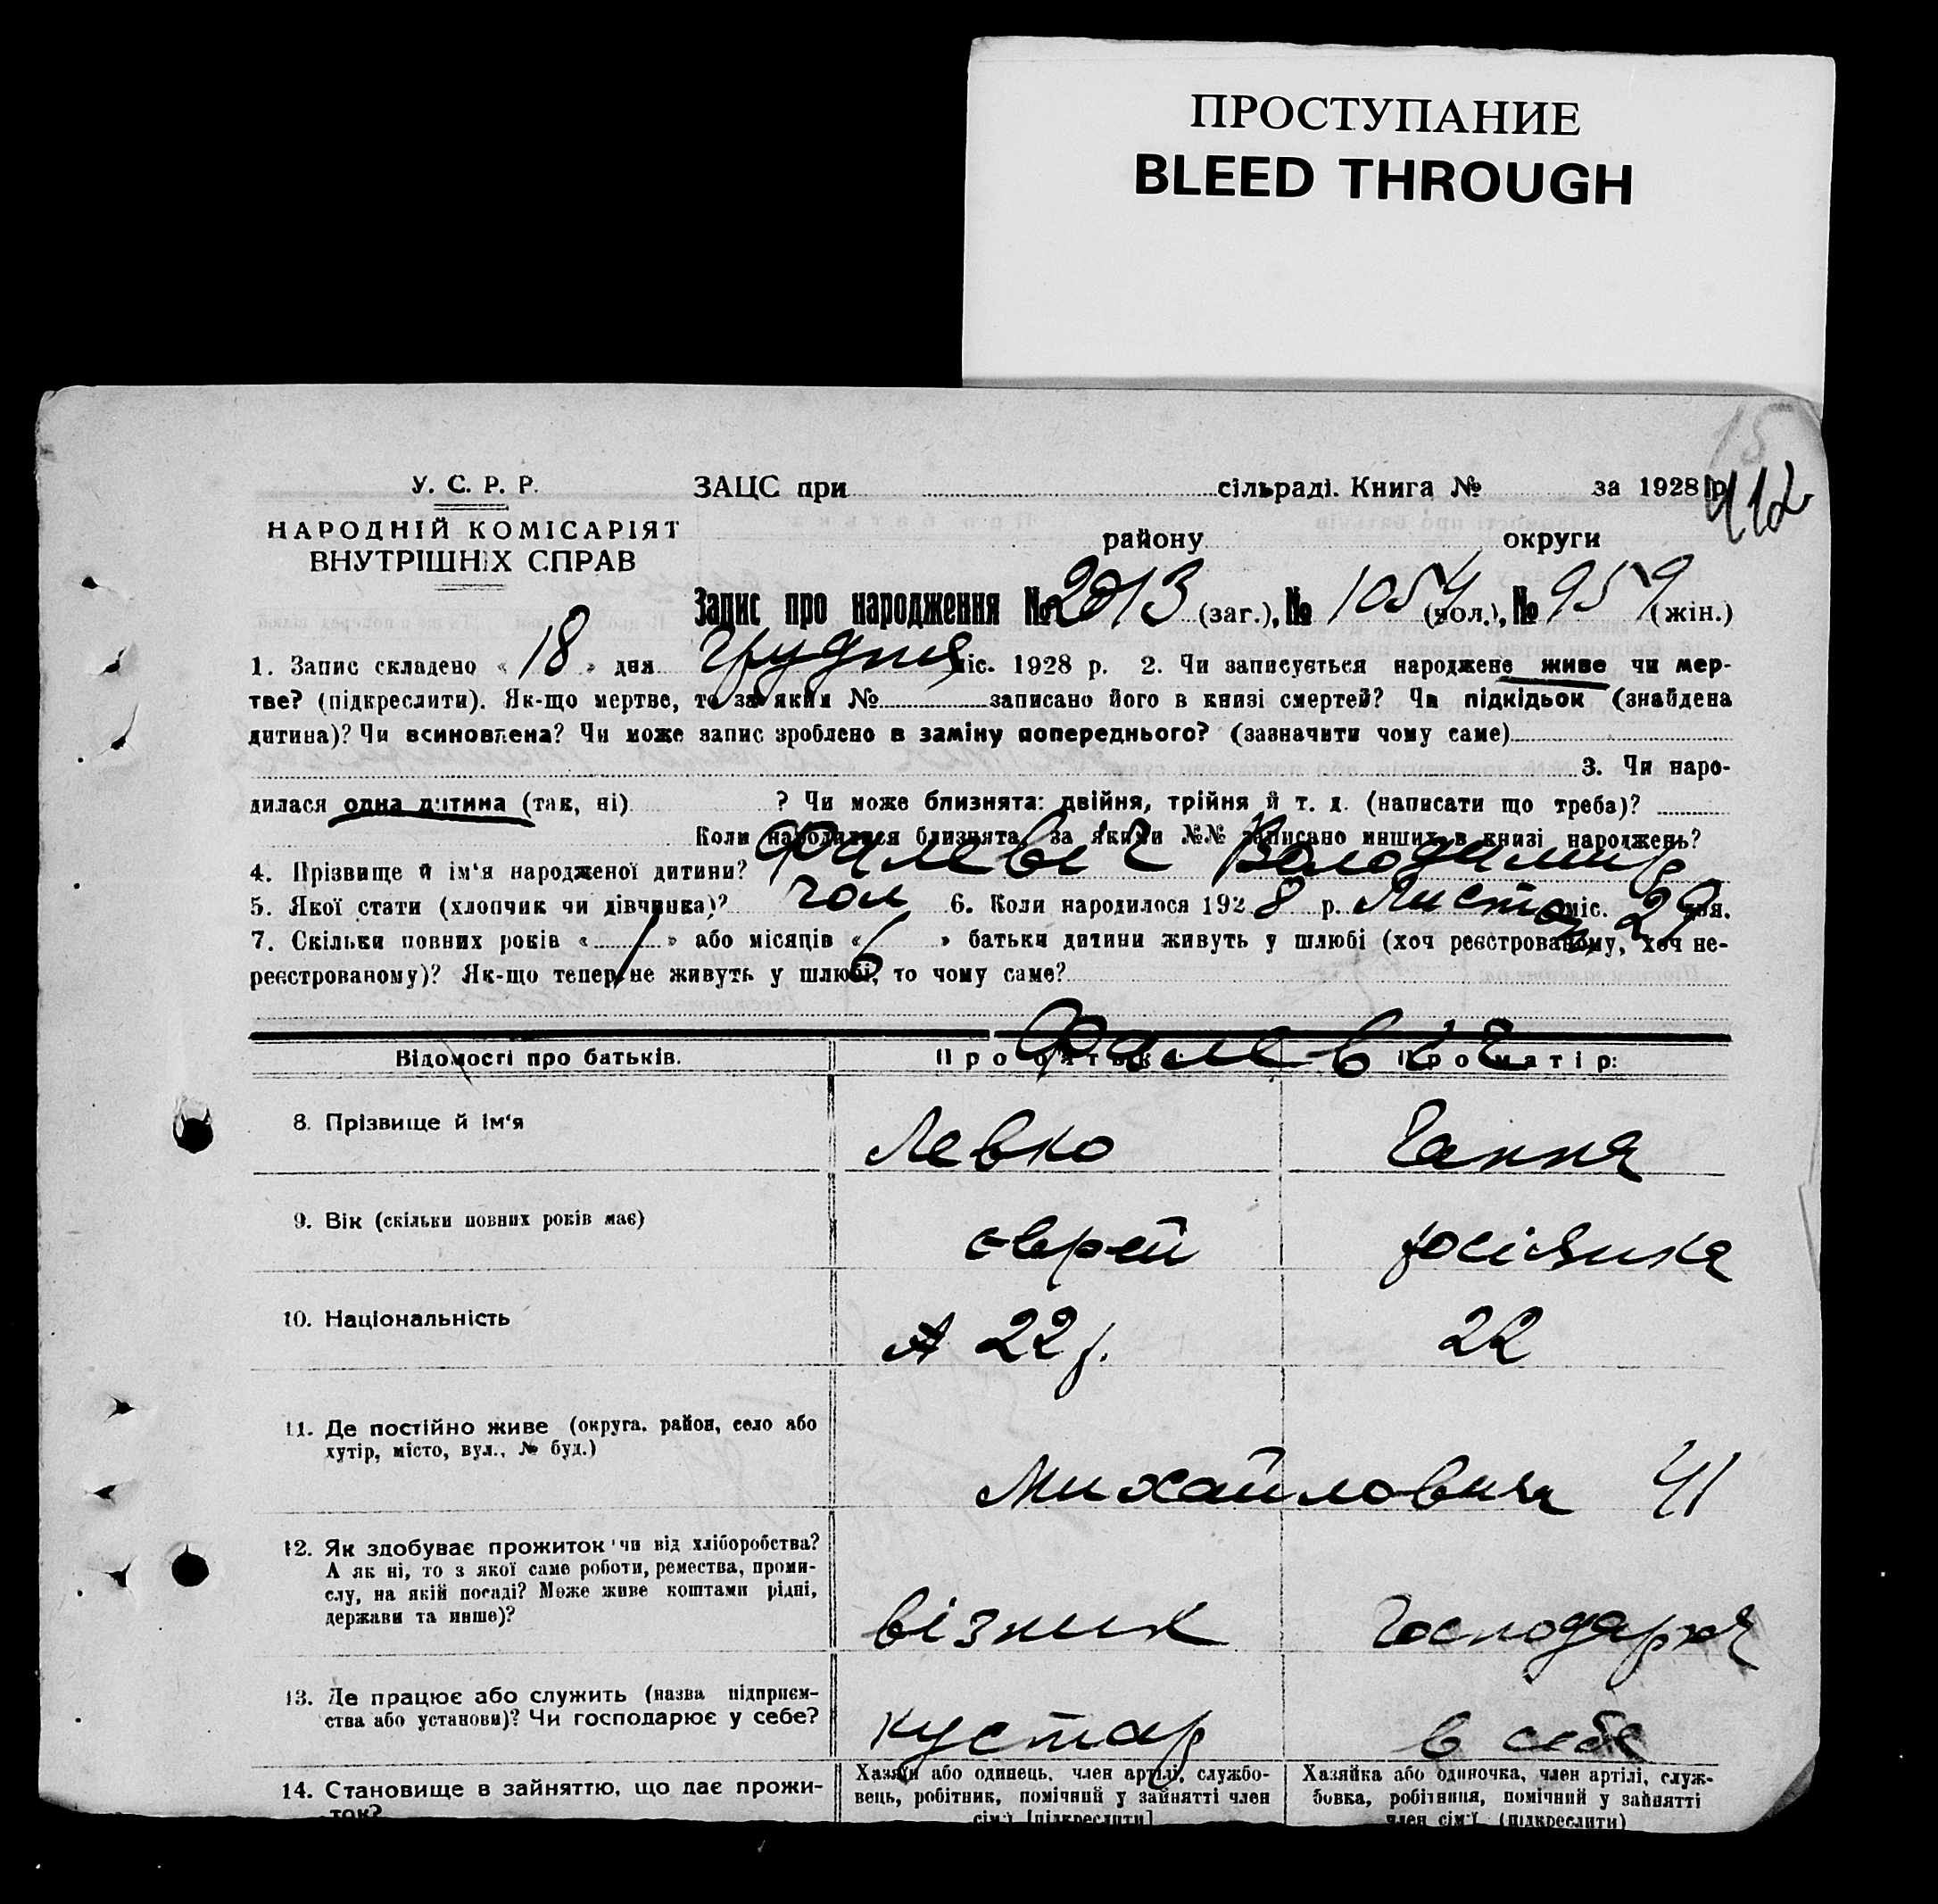 ПРОСТУПАНИЕ
BLEED THROUGH
15
412
У. С. Р. Р.
НАРОДНІЙ КОМІСАРІЯТ
ВНУТРІШНІХ СПРАВ
ЗАЦС при сільраді. Книга № за 1928 р.
району округи
Запис про народження № 2013 (заг.), № 1054 (чол.), № 959 (жін.)
1. Запис складено « 18 » дня грудня міс. 1928 р. 2. Чи записується народжене живе чи мер-
тве? (підкреслити). Як-що мертве, то за яким № записано його в книзі смертей? Чи підкідьок (знайдена
дитина)? Чи всиновлена? Чи може запис зроблено в заміну попереднього? (зазначити чому саме)
3. Чи наро-
дилася одна дитина (так, ні) ? Чи може близнята: двійня, трійня й т. д. (написати що треба)?
Коли народилися близнята, за якими №№ записано инших в книзі народжень?
4. Прізвище й ім'я народженої дитини? Фалевіч Володимир
5. Якої стати (хлопчик чи дівчинка)? чол 6. Коли народилося 1928 р. Листоп міс. 29 дня.
7. Скільки повних років « 1 » або місяців « 6 » батьки дитини живуть у шлюбі (хоч реєстрованому, хоч не-
реєстрованому)? Як-що тепер не живуть у шлюбі, то чому саме?
Фалевіч
Відомості про батьків. Про батька: Про матір:
8. Прізвище й ім'я Левко Ганна
9. Вік (скільки повних років має) єврей росіянка
10. Національність 22 р. 22
11. Де постійно живе (округа, район, село або
хутір, місто, вул., № буд.)
Михайловська 41
12. Як здобуває прожиток чи від хліборобства?
А як ні, то з якої саме роботи, ремества, проми-
слу, на якій посаді? Може живе коштами рідні,
держави та инше)?
візник Господарка
13. Де працює або служить (назва підприєм-
ства або установи)? Чи господарює у себе?
кустар в себе
14. Становище в зайняттю, що дає прожи-
ток?
Хазяїн або одинець, член артілі, службо-
вець, робітник, помічний у зайнятті член
сім'ї [підкреслити]
Хазяйка або одиночка, член артілі, служ-
бовка, робітниця, помічний у зайнятті
член сім'ї (підкреслити)